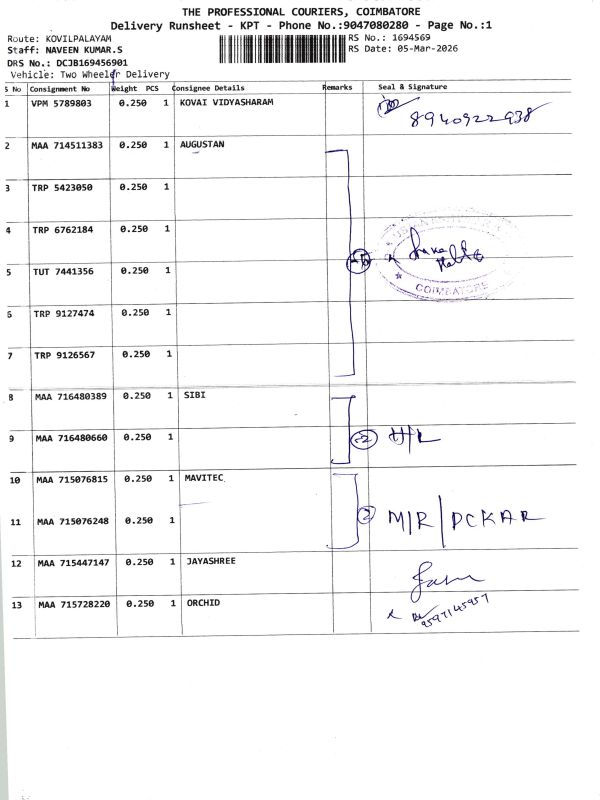 THE PROFESSIONAL COURIERS, COIMBATORE
Delivery Runsheet - KPT - Phone No.:9047080280 - Page No.:1
Route: KOVILPALAYAM RS No.: 1694569
Staff: NAVEEN KUMAR.S RS Date: 05-Mar-2026
DRS No.: DCJB169456901
Vehicle: Two Wheeler Delivery
S No Consignment No Weight PCS Consignee Details Remarks Seal & Signature
1 VPM 5789803 0.250 1 KOVAI VIDYASHARAM
8940922938
2 MAA 714511383 0.250 1 AUGUSTAN
3 TRP 5423050 0.250 1
4 TRP 6762184 0.250 1
5 TUT 7441356 0.250 1
COIMBATORE
6 TRP 9127474 0.250 1
7 TRP 9126567 0.250 1
8 MAA 716480389 0.250 1 SIBI
9 MAA 716480660 0.250 1 2 H/L
10 MAA 715076815 0.250 1 MAVITEC
11 MAA 715076248 0.250 1 2 M/R/DCKAR
12 MAA 715447147 0.250 1 JAYASHREE
13 MAA 715728220 0.250 1 ORCHID
9597145957